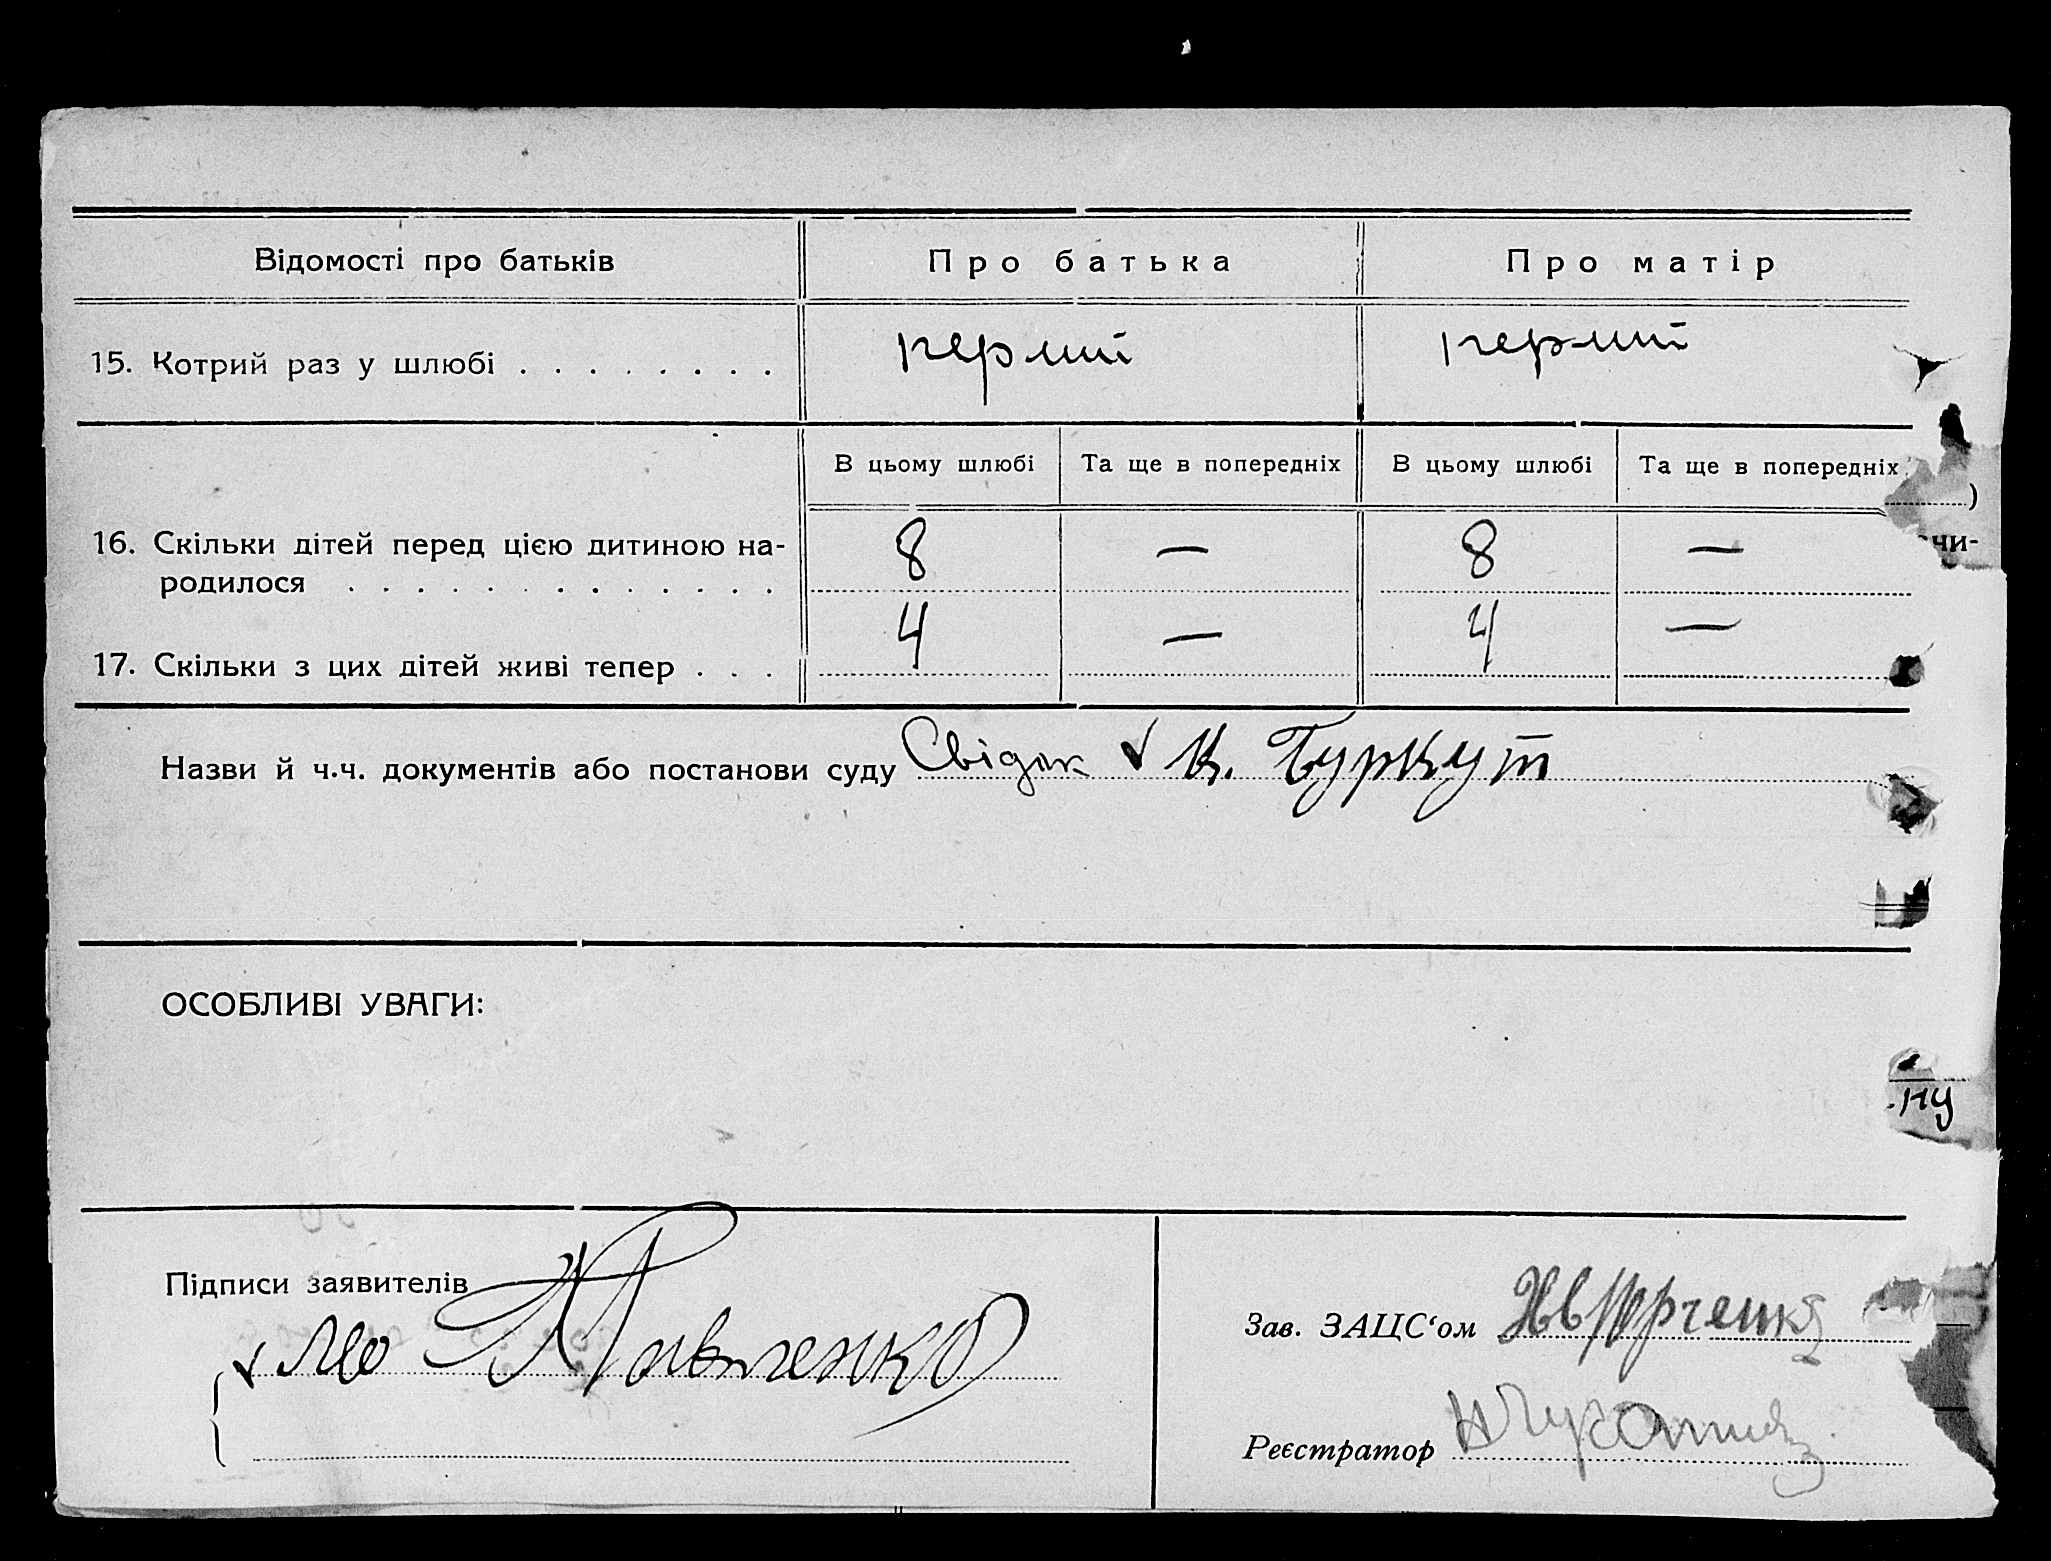 Відомості про батьків Про батька Про матір
15. Котрий раз у шлюбі . . . . . . . . перший перший
В цьому шлюбі Та ще в попередніх В цьому шлюбі Та ще в попередніх
16. Скільки дітей перед цією дитиною на- 8 — 8 —
родилося . . . . . . . . . . . . .
17. Скільки з цих дітей живі тепер . . . 4 — 4 —
Назви й ч.ч. документів або постанови суду Свідок К. Буркут
ОСОБЛИВІ УВАГИ:
ну
Підписи заявителів
Зав. ЗАЦС‘ом
Реєстратор